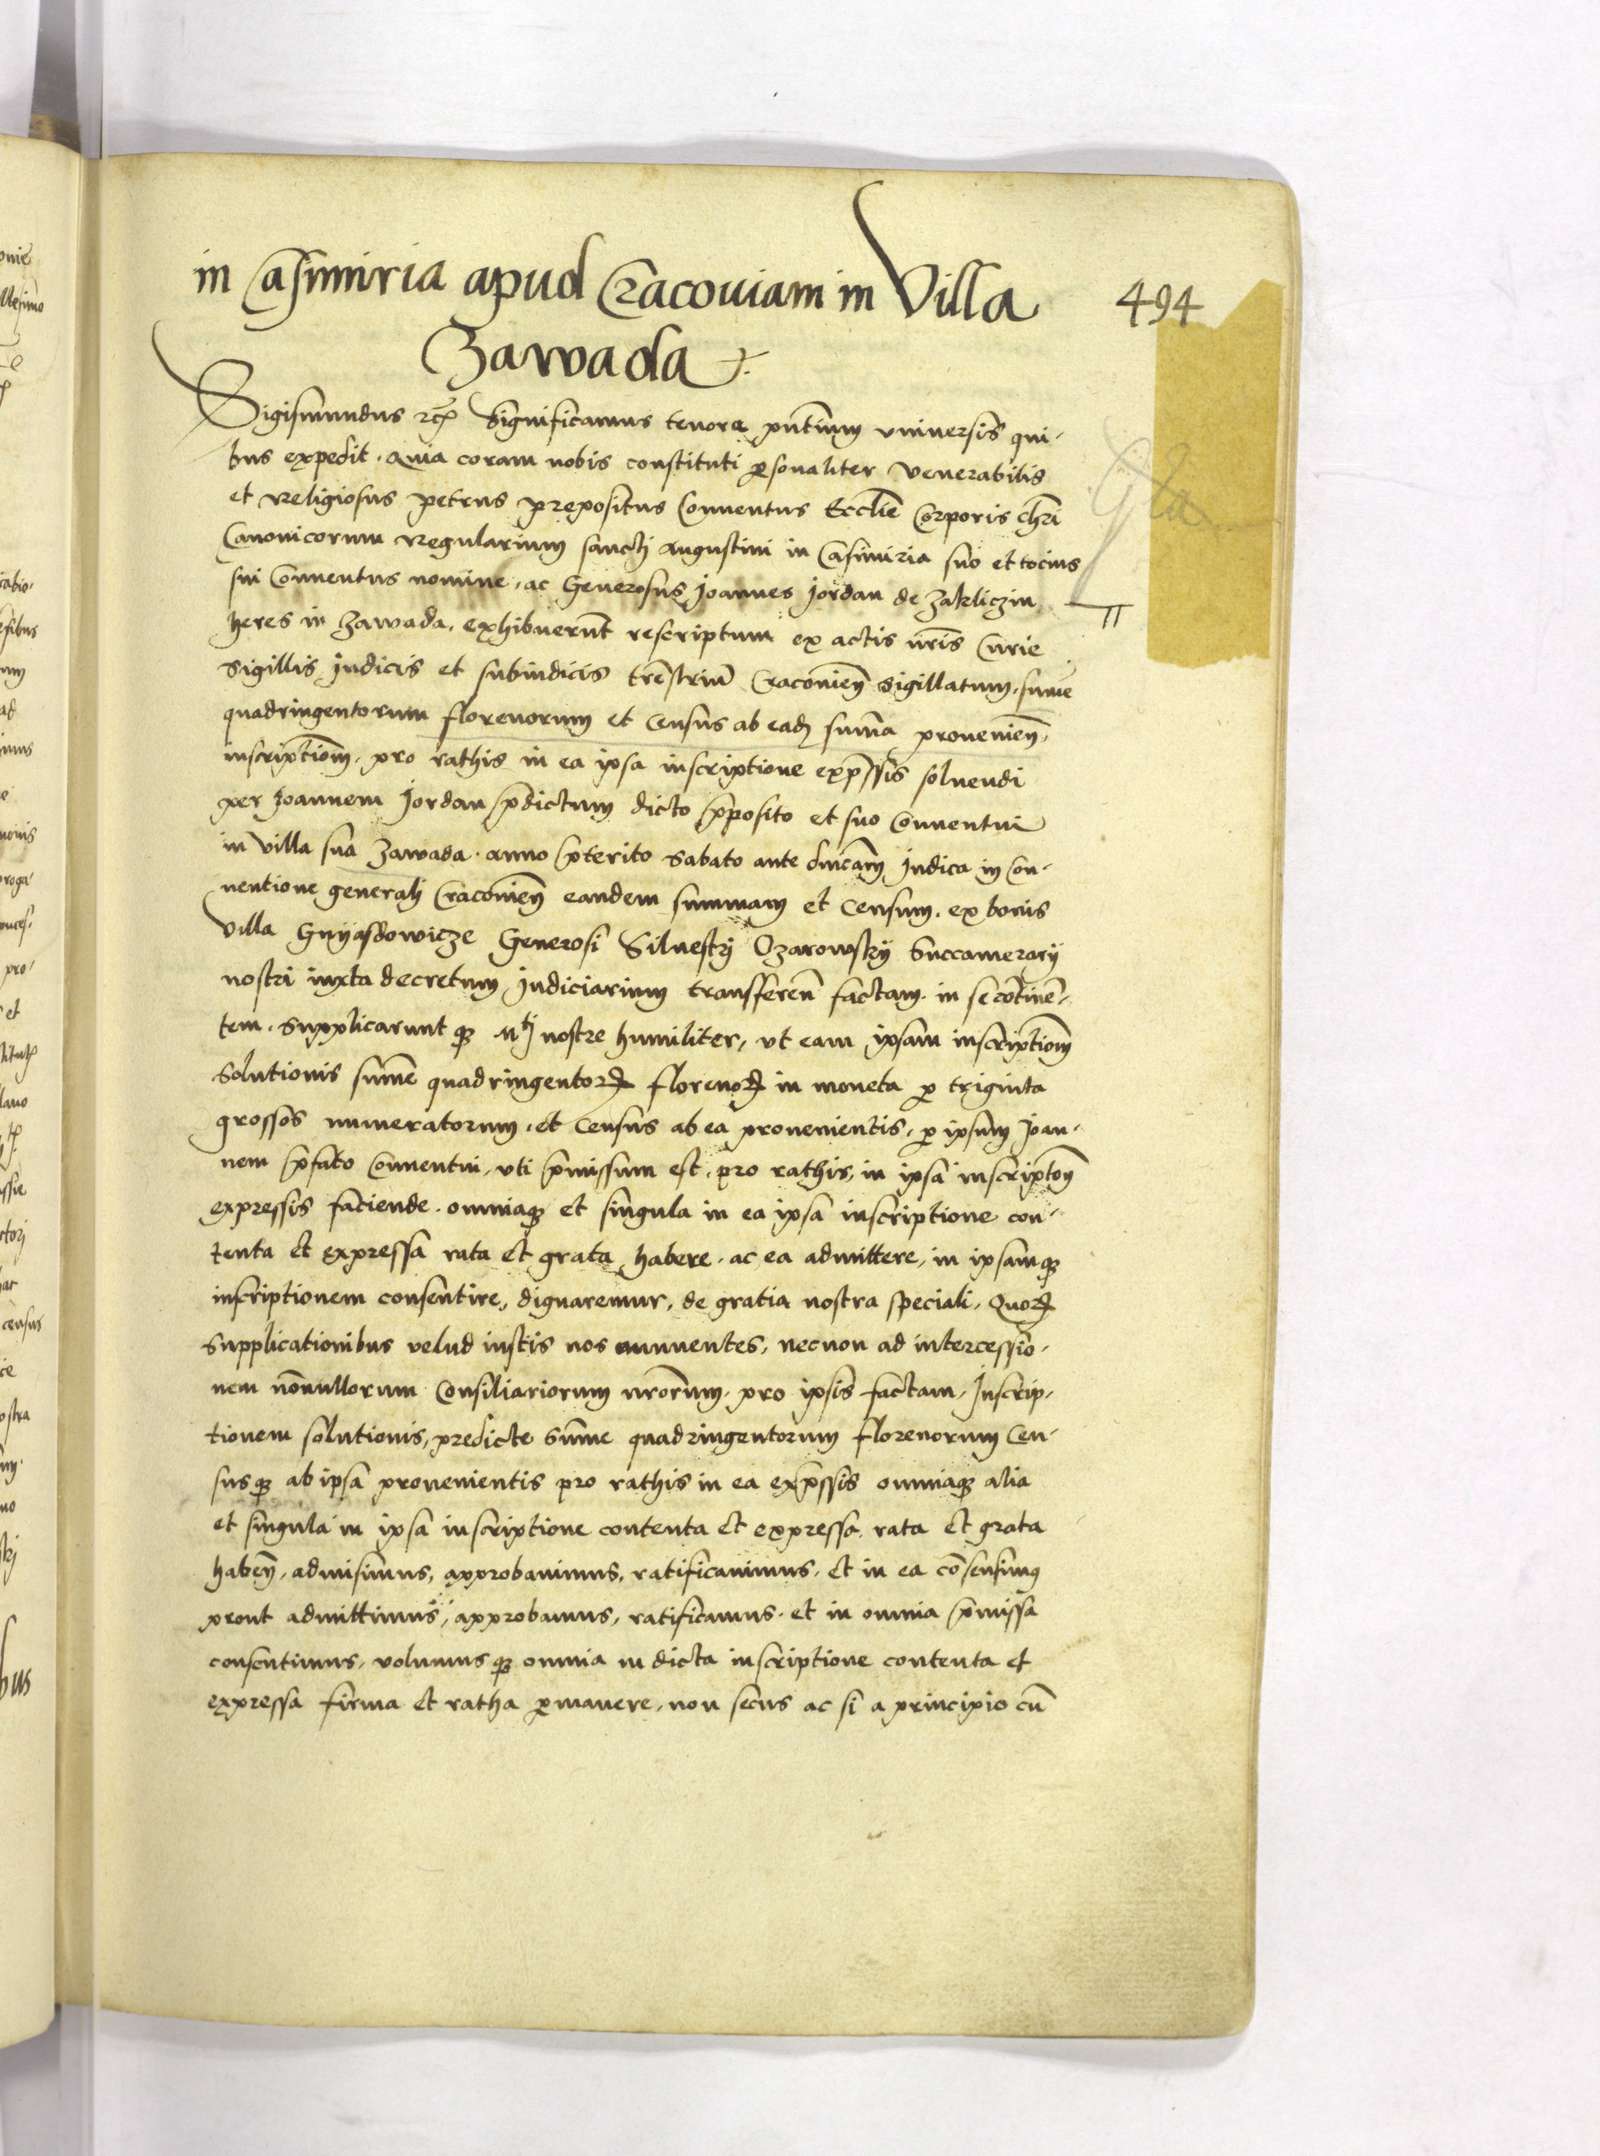 in Casimiria apud Cracouiam in Villa
494
Zawada
Sigismundus rcz Significamus tenore pntium vniuersis qui-
bus expedit. Quia coram nobis constituti personaliter Venerabilis
et Religiosus petrus prepositus Conuentus Ecclie Corporis chri
Canonicorum Regularium sancti Augustini in Casimiria suo et tocius
sui Conuentus nomine. ac Generosus Joannes Jordan de Zakliczin
heres in Zawada. exhibuerunt rescriptum ex actis nris Curie
Sigillis Judicis et subiudicis trestrium Cracouien sigillatum. sume
quadringentorum florenorum et Census ab eadem summa prouenien
inscriptiom. pro rathis in ea ipsa inscriptione expssis soluendi
per Joannem Jordan pdictum dicto pposito et suo Conuentui
in villa sua Zawada. anno pterito Sabato ante dnicam Judica in Con-
uentione generali Cracouien eandem summam et Censum. ex bonis
villa Gnyasdowicze Generosi Siluestri Ozarowsky Succamerary
nostri iuxta decretum Judiciarium transferen factam. in se contine-
tem. Supplicaruntque Mti nostre humiliter, vt eam ipsam inscriptiom
Solutionis sume quadringentorum florenorum in moneta per triginta
grossos numeratorum. et Census ab ea prouenientis, per ipsum Joan-
nem pfato Conuentui, vti pmissum est. pro rathis, in ipsa inscriptom
expressis faciende. omniaque et singula in ea ipsa inscriptione con-
tenta et expressa rata et grata habere. ac ea admittere, in ipsamque
inscriptionem consentire, dignaremur, de gratia nostra speciali, Quorum
Supplicationibus velud iustis nos annuentes, necnon ad intercessio-
nem nonullorum Consiliariorum nrorum. pro ipsis factam, Inscrip-
tionem solutionis, predicte Sume quadringentorum florenorum Cen-
susque ab ipsa prouenientis pro rathis in ea expssis omniaque alia
et singula in ipsa inscriptione contenta et expressa. rata et grata
haben, admisimus, approbauimus, ratificauimus, et in ea consensimus
prout admittimus, approbamus, ratificamus. et in omnia pmissa
consentimus, volumusque omnia in dicta inscriptione contenta et
expressa firma et ratha permanere, non secus ac si a principio cu